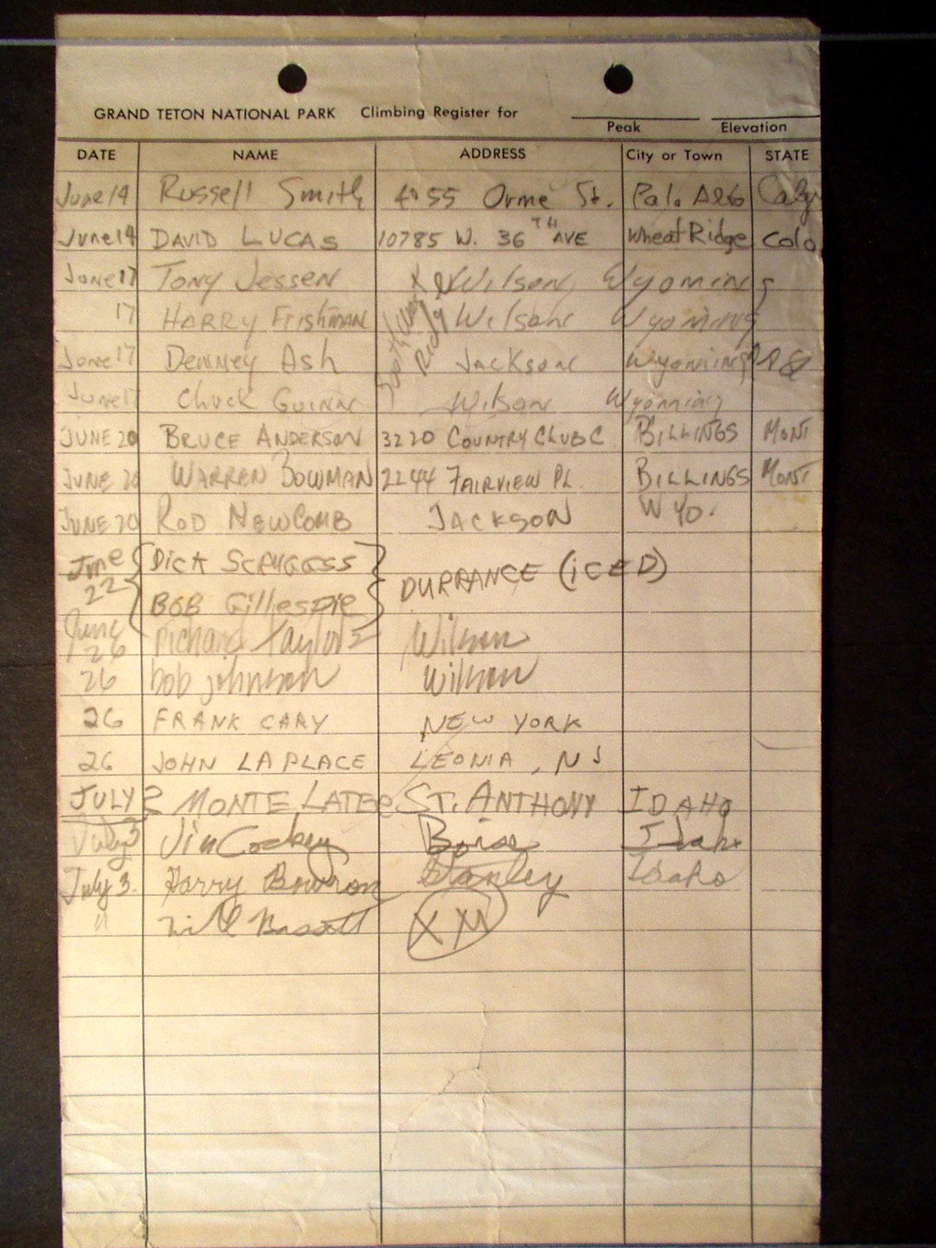 GRAND TETON NATIONAL PARK Climbing Register for
Peak Elevation
DATE NAME ADDRESS City or Town STATE
June 19 Russell Smith 4155 Orme St. Palo Alto
June 19 DAVID LUCAS 10785 W. 36TH AVE Wheat Ridge Colo
June 17 Tony Jessen Wilson Wyoming
17 HARRY Frishman Wilson Wyoming
June 17 Denney Ash Jackson Wyoming
June 17 Chuck Guinn Wilson Wyoming
JUNE 20 BRUCE ANDERSON 3220 COUNTRY CLUB C BILLINGS MONT
JUNE 20 WARREN BOWMAN 2244 FAIRVIEW PL. BILLINGS MONT
JUNE 20 ROD NEWCOMB JACKSON WYO.
June 22 DICK DURRANCE (iCED)
BOB Gillespie
June 26 Richard Taylor Wilson
26 bob johnson Wilson
26 FRANK CARY NEW YORK
26 JOHN LA PLACE LEONIA, NJ
JULY 2 MONTE LATER ST. ANTHONY IDAHO
July 3 Jim Cockey Boise Idaho
July 3. Harry Bowron Stanley Idaho
" Will Bassett XM